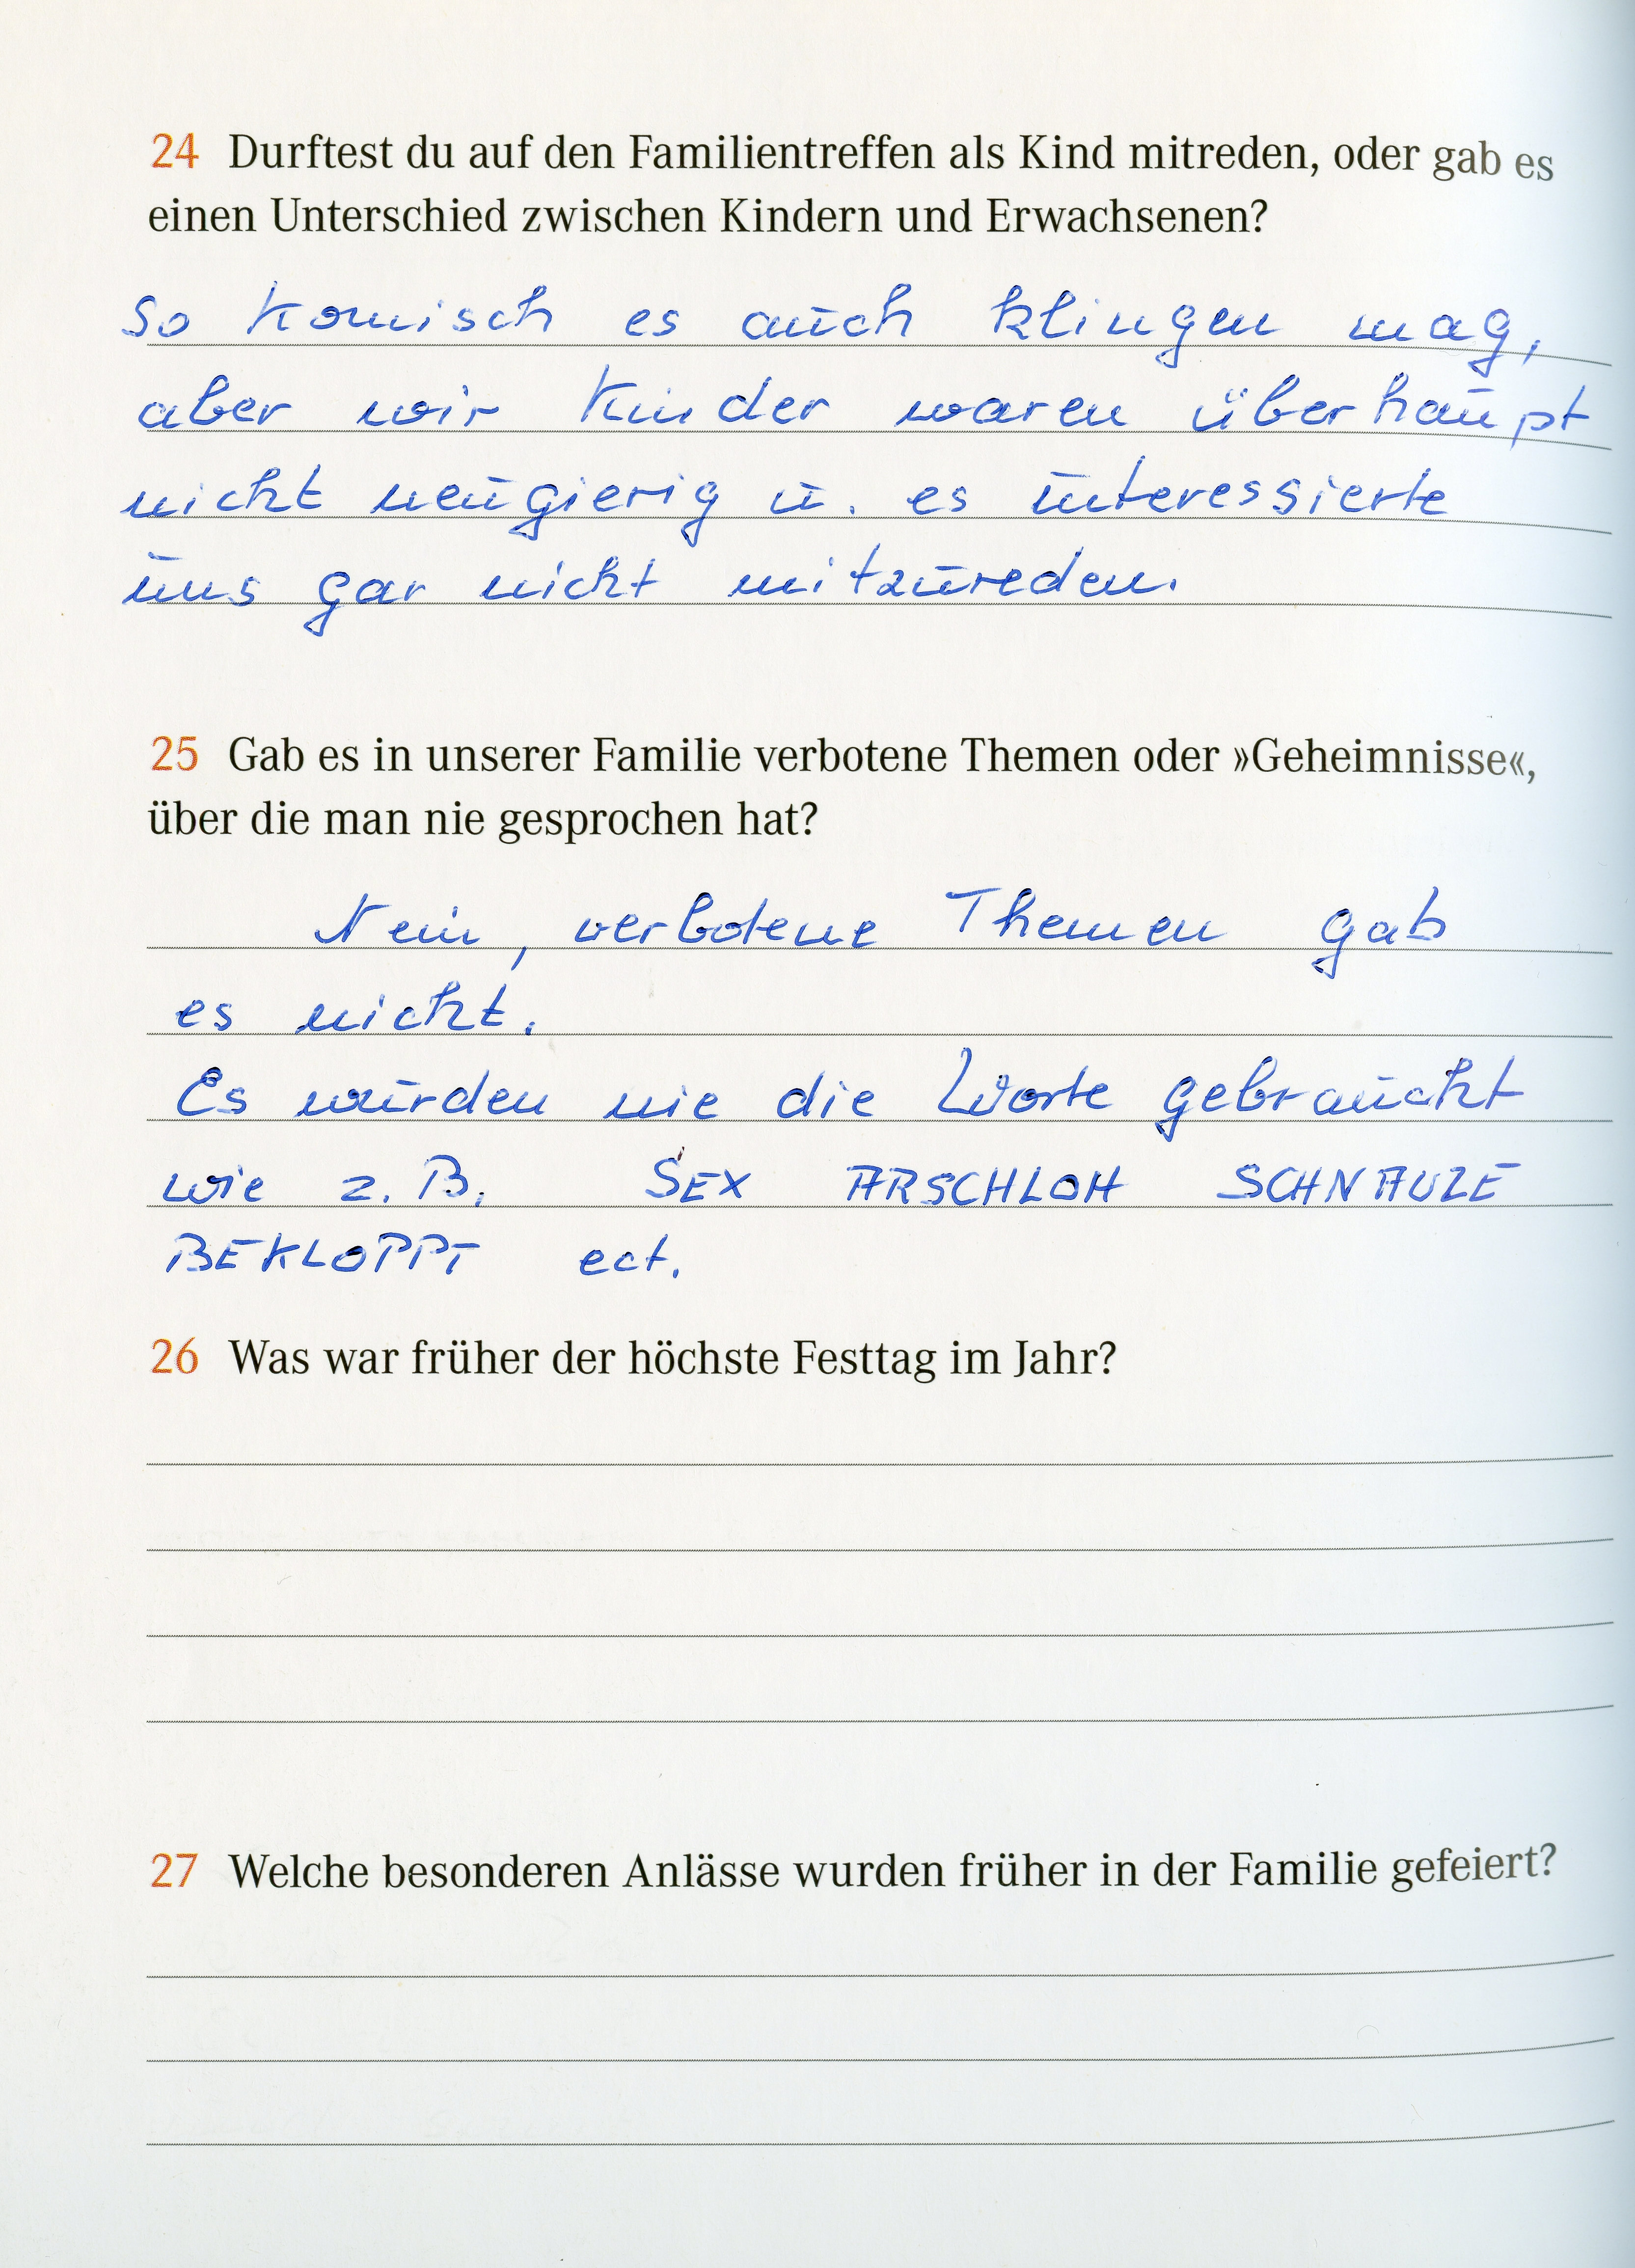 24 Durftest du auf den Familientreffen als Kind mitreden, oder gab es
einen Unterschied zwischen Kindern und Erwachsenen?
So komisch es auch klingen mag,
aber wir Kinder waren überhaupt
nicht neugierig u. es interessierte
uns gar nicht mitzureden.
25 Gab es in unserer Familie verbotene Themen oder »Geheimnisse«,
über die man nie gesprochen hat?
Nein, verbotene Themen gab
es nicht.
Es wurden nie die Worte gebraucht
wie z. B. SEX ARSCHLOH SCHNAUZE
BEKLOPPT ect.
26 Was war früher der höchste Festtag im Jahr?
27 Welche besonderen Anlässe wurden früher in der Familie gefeiert?